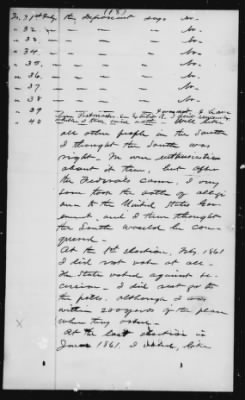 (18)
To 31st Inty the Deponent says No.
" 32 — " — " — " — No.
" 33. — " — " — " — No.
" 34. — " — " — " — No.
" 35. — " — " — " — No.
" 36. — " — " — " — No.
" 37. — " — " — " — No.
" 38. — " — " — " — No.
" 39 — " — " —
" 40
all other people in the South
I thought the South was
right. We were enthusiastic
about it then, but after
the Federals came, I very
soon took the oath of allegi
ance to the United States Gov
ernment, and I then thought
the South would be con
quered.
At the 1st election, Feby 1861
I did not vote at all.
The State voted against se-
cession. I did not go to
the polls, although I was
within 200 yards of the place
when they voted.
At the last election in
June 1861. I voted, like